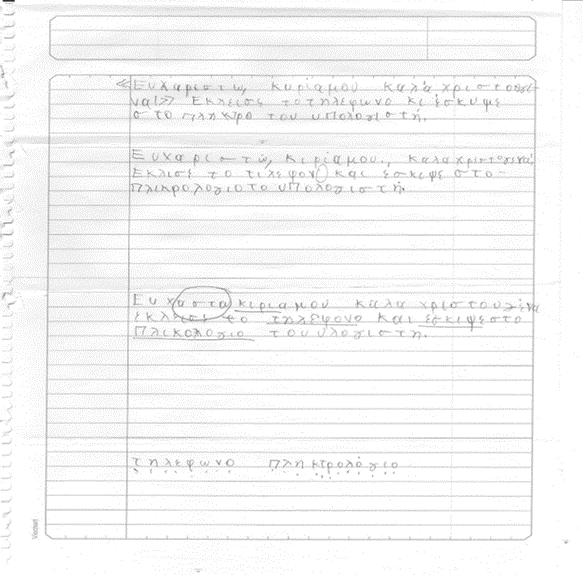 «Ευχαριστώ, κυρίαμου καλά χριστουγέ-
να!» Εκλεισε τοτηλεφωνο κι έσκυψε
στο πληκρο του υπολογιστή.
Ευχαριστώ, κιρίαμου., καλαχριστογενα
Εκλισε το τιλεφονο και έσκιψε στο-
πλικρολογιοτο υπολογιστή.
Ευχαστα κιριαμου καλα χριστουγένα
εκλεισε το τηλεφονο και εσκιψεστο
πλικολογιο τουυλογιστη.
τηλεφωνο πληκτρολόγιο